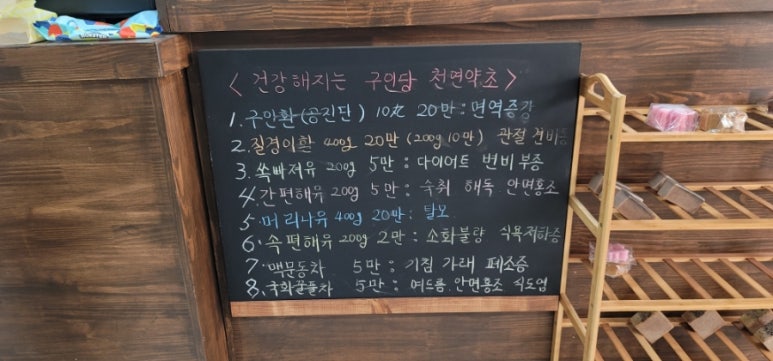 < 건강해지는 구인당 천연약초 >
1. 구안환 (공진단) 10丸 20만 : 면역증강
2. 질경이환 400g 20만 (200g 10만) 관절 변비등
3. 쏙빠져유 200g 5만 : 다이어트 변비 부종
4. 간편해유 200g 5만 : 숙취 해독 안면홍조
5. 머리나유 400g 20만 : 탈모
6. 속편해유 200g 2만 : 소화불량 식욕저하증
7. 맥문동차 5만 : 기침 가래 폐소증
8. 국화꿀돌차 5만 : 여드름. 안면홍조 식도염